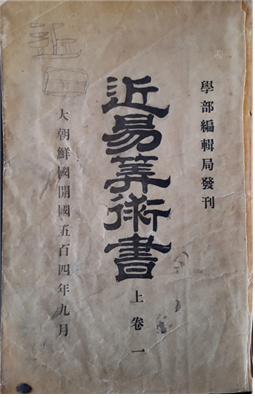 學部編輯局發刊
近易筭術書
上卷一
大朝鮮國開國五百四年九月